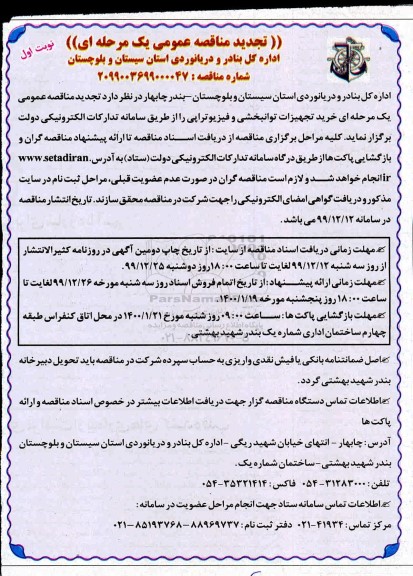 (( تجدید مناقصه عمومی یک مرحله ای))
نوبت اول
اداره کل بنادر و دریانوردی استان سیستان و بلوچستان
شماره مناقصه : ۲۰۹۹۰۰۳۶۹۹۰۰۰۰۴۷
اداره کل بنادر و دریانوردی استان سیستان و بلوچستان –بندر چابهار در نظر دارد تجدید مناقصه عمومی
یک مرحله ای خرید تجهیزات توانبخشی و فیزیوتراپی را از طریق سامانه تدارکات الکترونیکی دولت
برگزار نماید. کلیه مراحل برگزاری مناقصه از دریافت اسناد مناقصه تا ارائه پیشنهاد مناقصه گران و
بازگشایی پاکت ها از طریق درگاه سامانه تدارکات الکترونیکی دولت (ستاد) به آدرس www.setadiran.
ir انجام خواهد شد و لازم است مناقصه گران در صورت عدم عضویت قبلی، مراحل ثبت نام در سایت
مذکور و دریافت گواهی امضای الکترونیکی را جهت شرکت در مناقصه محقق سازند. تاریخ انتشار مناقصه
در سامانه ۹۹/۱۲/۱۲ می باشد.
مهلت زمانی دریافت اسناد مناقصه از سایت : از تاریخ چاپ دومین آگهی در روزنامه کثیرالانتشار
از روز سه شنبه ۹۹/۱۲/۱۲ لغایت تا ساعت ۱۸:۰۰ روز دوشنبه ۹۹/۱۲/۲۵.
مهلت زمانی ارائه پیشنهاد: از تاریخ اتمام فروش اسناد روز سه شنبه مورخه ۹۹/۱۲/۲۶ لغایت تا
ساعت ۱۸:۰۰ روز پنجشنبه مورخه ۱۴۰۰/۱/۱۹.
مهلت بازگشایی پاکت ها : ساعت ۰۹:۰۰ روز شنبه مورخ ۱۴۰۰/۱/۲۱ در محل اتاق کنفراس طبقه
چهارم ساختمان اداری شماره یک بندر شهید بهشتی.
اصل ضمانتنامه بانکی یا فیش نقدی واریزی به حساب سپرده شرکت در مناقصه باید تحویل دبیرخانه
بندر شهید بهشتی گردد.
اطلاعات تماس دستگاه مناقصه گزار جهت دریافت اطلاعات بیشتر در خصوص اسناد مناقصه و ارائه
پاکت ها
آدرس: چابهار – انتهای خیابان شهید ریگی – اداره کل بنادر و دریانوردی استان سیستان و بلوچستان
بندر شهید بهشتی – ساختمان شماره یک.
تلفن: ۳۱۲۸۳۰۰۰–۰۵۴ فاکس: ۳۵۳۲۱۴۱۴–۰۵۴
اطلاعات تماس سامانه ستاد جهت انجام مراحل عضویت در سامانه :
مرکز تماس: ۴۱۹۳۴–۰۲۱ دفتر ثبت نام : ۸۸۹۶۹۷۳۷–۸۵۱۹۳۷۶۸–۰۲۱